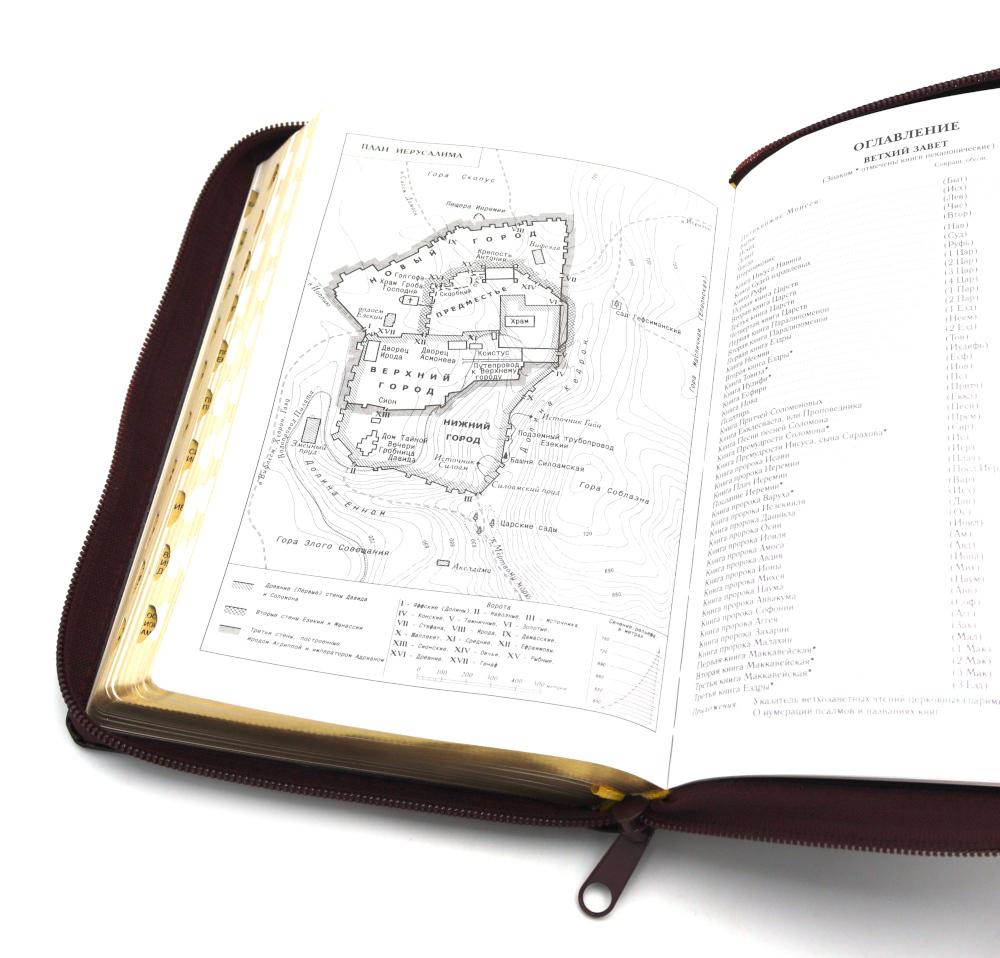 ПЛАН ИЕРУСАЛИМА
Гора Скопус
Пещера Иеремии
НОВЫЙ ГОРОД
VIII
IX
Вифезда
Крепость
Антония
VII
Голгофа
Храм Гроба
Господня
Скорбный
XIV
VI
ПРЕДМЕСТЬЕ
Сад Гефсиманский
Храм
Езекии
I
XVII
XI
Дворец
Ирода
Дворец
Асмонеев
Ксистус
Путепровод
к Верхнему
городу
IV
ВЕРХНИЙ
ГОРОД
Кедрон
Сион
XIII
X
НИЖНИЙ
ГОРОД
Источник Гион
Подземный трубопровод
Езекии
Дом Тайной
Вечери
Гробница
Давида
Змеиный
пруд
Водопровод Пилата
Источник
Силоам
Башня Силоамская
II
III
Силоамский пруд
Гора Соблазна
Долина Еннон
Царские сады
Гора Злого Совещания
Акелдама
К Мертвому морю
Древние (Первые) стены Давида
и Соломона
Вторые стены Езекии и Манассии
Третьи стены, построенные
Иродом Агриппой и императором Адрианом
Ворота
I - Яффские (Долины), II - Навозные, III - Источника,
IV - Конские, V - Темничные, VI - Золотые,
VII - Стефана, VIII - Ирода, IX - Дамасские,
X - Шаллекет, XI - Средние, XII - Ефраимовы,
XIII - Сионские, XIV - Овечьи, XV - Рыбные,
XVI - Древние, XVII - Генаф
0 100 200 300 400 500 метров
Сечение рельефа
в метрах
ОГЛАВЛЕНИЕ
ВЕТХИЙ ЗАВЕТ
(Знаком * отмечены книги неканонические)
Сокращ. обозн.
Пятикнижие Моисея:
(Быт)
(Исх)
(Лев)
(Чис)
Второзаконие (Втор)
Книга Иисуса Навина (Нав)
Книга Судей израилевых (Суд)
Книга Руфи (Руфь)
Первая книга Царств (1 Цар)
Вторая книга Царств (2 Цар)
Третья книга Царств (3 Цар)
Четвертая книга Царств (4 Цар)
Первая книга Паралипоменон (1 Пар)
Вторая книга Паралипоменон (2 Пар)
Первая книга Ездры (1 Езд)
Книга Неемии (Неем)
Вторая книга Ездры* (2 Езд)
Книга Товита* (Тов)
Книга Иудифи* (Иудифь)
Книга Есфири (Есф)
Книга Иова (Иов)
Псалтирь (Пс)
Книга Притчей Соломоновых (Притч)
Книга Екклесиаста, или Проповедника (Еккл)
Книга Песни песней Соломона (Песн)
Книга Премудрости Соломона* (Прем)
Книга Премудрости Иисуса, сына Сирахова* (Сир)
Книга пророка Исаии (Ис)
Книга пророка Иеремии (Иер)
Книга Плач Иеремии (Плач)
Послание Иеремии*
Книга пророка Варуха* (Вар)
Книга пророка Иезекииля (Иез)
Книга пророка Даниила (Дан)
Книга пророка Осии (Ос)
Книга пророка Иоиля (Иоил)
Книга пророка Амоса (Ам)
Книга пророка Авдия (Авд)
Книга пророка Ионы (Иона)
Книга пророка Михея (Мих)
Книга пророка Наума (Наум)
Книга пророка Аввакума (Авв)
Книга пророка Софонии (Соф)
Книга пророка Аггея (Агг)
Книга пророка Захарии (Зах)
Книга пророка Малахии (Мал)
Первая книга Маккавейская* (1 Мак)
Вторая книга Маккавейская* (2 Мак)
Третья книга Маккавейская* (3 Мак)
Третья книга Ездры* (3 Езд)
Приложения. Указатель ветхозаветных чтений церковных
О нумерации псалмов и названиях книг